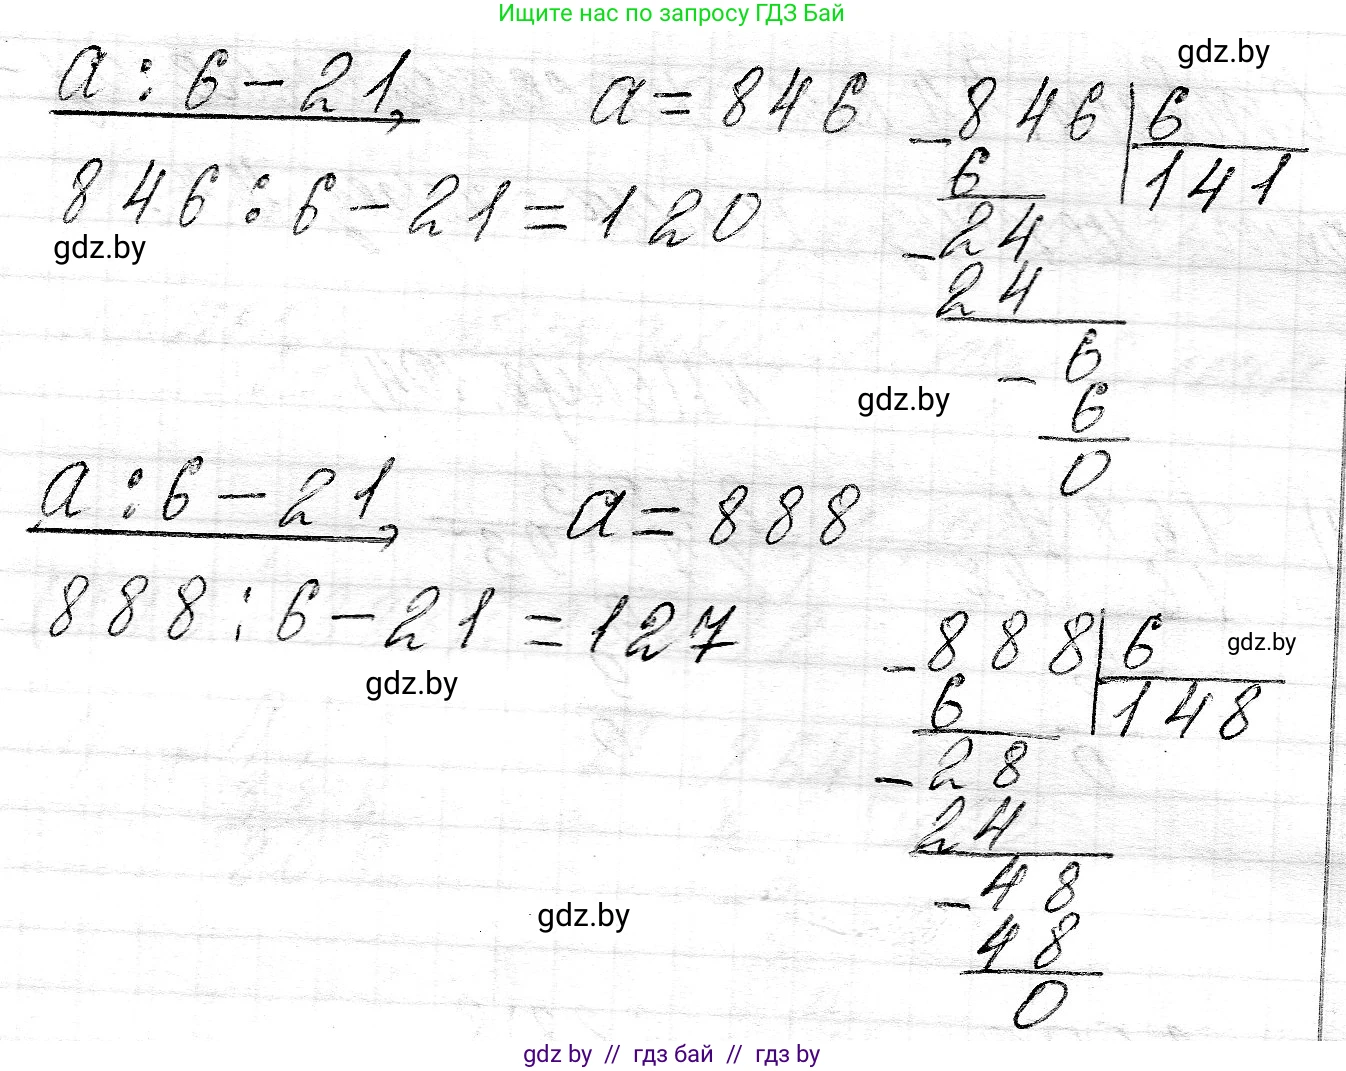 Ищите нас по запросу ГДЗ Бай
gdz.by
a : 6 - 21,    a = 846
846 : 6 - 21 = 120
gdz.by
- 846 | 6
6    141
- 24
24
- 6
6
0
gdz.by
a : 6 - 21,    a = 888
888 : 6 - 21 = 127
gdz.by
- 888 | 6
gdz.by
6    148
- 28
24
- 48
48
0
gdz.by
gdz by // гдз бай // гдз by